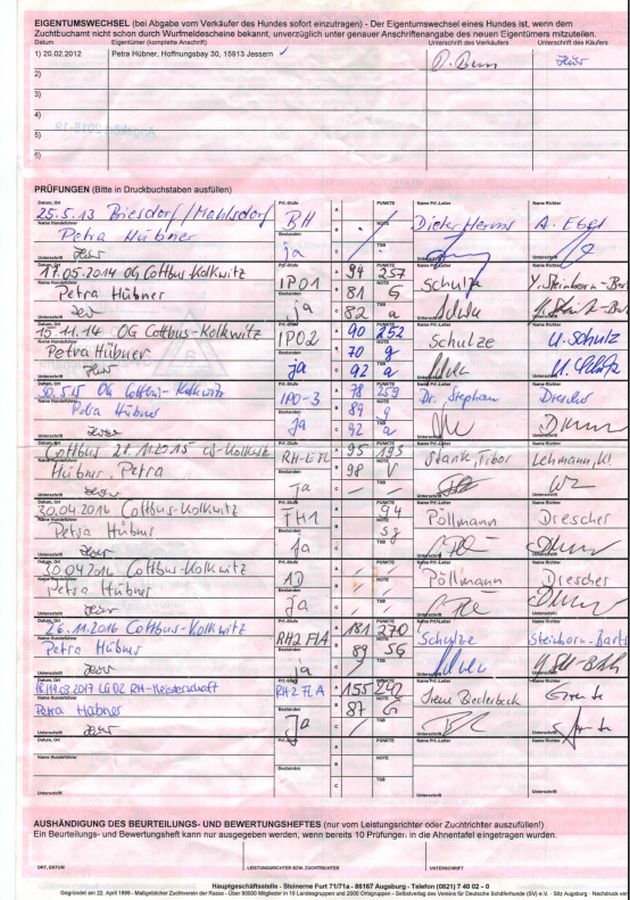 EIGENTUMSWECHSEL (bei Abgabe vom Verkäufer des Hundes sofort einzutragen) - Der Eigentumswechsel eines Hundes ist, wenn dem
Zuchtbuchamt nicht schon durch Wurfmeldescheine bekannt, unverzüglich unter genauer Anschriftenangabe des neuen Eigentümers mitzuteilen.
Datum Eigentümer (komplette Anschrift) Unterschrift des Verkäufers Unterschrift des Käufers
1) 20.02.2012 Petra Hübner, Hoffnungsbay 30, 15913 Jessern
2)
3)
4)
5)
6)
PRÜFUNGEN (Bitte in Druckbuchstaben ausfüllen)
Datum, Ort Prf.-Stufe A PUNKTE Name Prf.-Leiter Name Richter
25.5.13 Biesdorf/Mahlsdorf BH Dieter Herms A. Ebel
Name Hundeführer Bestanden B NOTE
Petra Hübner ja
Unterschrift C TSB Unterschrift Unterschrift
17.05.2014 OG Cottbus-Kolkwitz IPO1 94 257 Schulze Y. Steinborn-Bart
Petra Hübner ja 81 G
82 a
15.11.14 OG Cottbus-Kolkwitz IPO2 90 252 Schulze U. Schulz
Petra Hübner ja 70 g
92 a
30.5.15 OG Cottbus-Kolkwitz IPO-3 78 259 Dr. Stephan Drescher
Petra Hübner ja 89 g
92 a
Cottbus 28.11.2015 Kolkwitz 95 193 Stank, Tibor Lehmann, K.
Hübner, Petra ja 98 V
30.04.2016 Cottbus-Kolkwitz FH1 94 Pöllmann Drescher
Petra Hübner ja sg
30.04.2016 Cottbus-Kolkwitz AD Pöllmann Drescher
Petra Hübner ja
26.11.2016 Cottbus-Kolkwitz RH2 FLA 181 270 Schulze Steinborn-Barts
Petra Hübner ja 89 SG
18./19.03.2017 LG02 RH-Meisterschaft RH2 FLA 155 242 Irene Biederbeck
Petra Hübner Ja 87 G
Datum, Ort Prf.-Stufe A PUNKTE Name Prf.-Leiter Name Richter
Name Hundeführer Bestanden B NOTE
Unterschrift C TSB Unterschrift Unterschrift
AUSHÄNDIGUNG DES BEURTEILUNGS- UND BEWERTUNGSHEFTES (nur vom Leistungsrichter oder Zuchtrichter auszufüllen!)
Ein Beurteilungs- und Bewertungsheft kann nur ausgegeben werden, wenn bereits 10 Prüfungen in die Ahnentafel eingetragen wurden.
ORT, DATUM LEISTUNGSRICHTER BZW. ZUCHTRICHTER UNTERSCHRIFT
Hauptgeschäftsstelle - Steinerne Furt 71/71a - 86167 Augsburg - Telefon (0821) 7 40 02 - 0
Gegründet am 22. April 1899 - Maßgeblicher Zuchtverein der Rasse - Über 80000 Mitglieder in 19 Landesgruppen und 2000 Ortsgruppen - Selbstverlag des Vereins für Deutsche Schäferhunde (SV) e.V. - Sitz Augsburg - Nachdruck ver